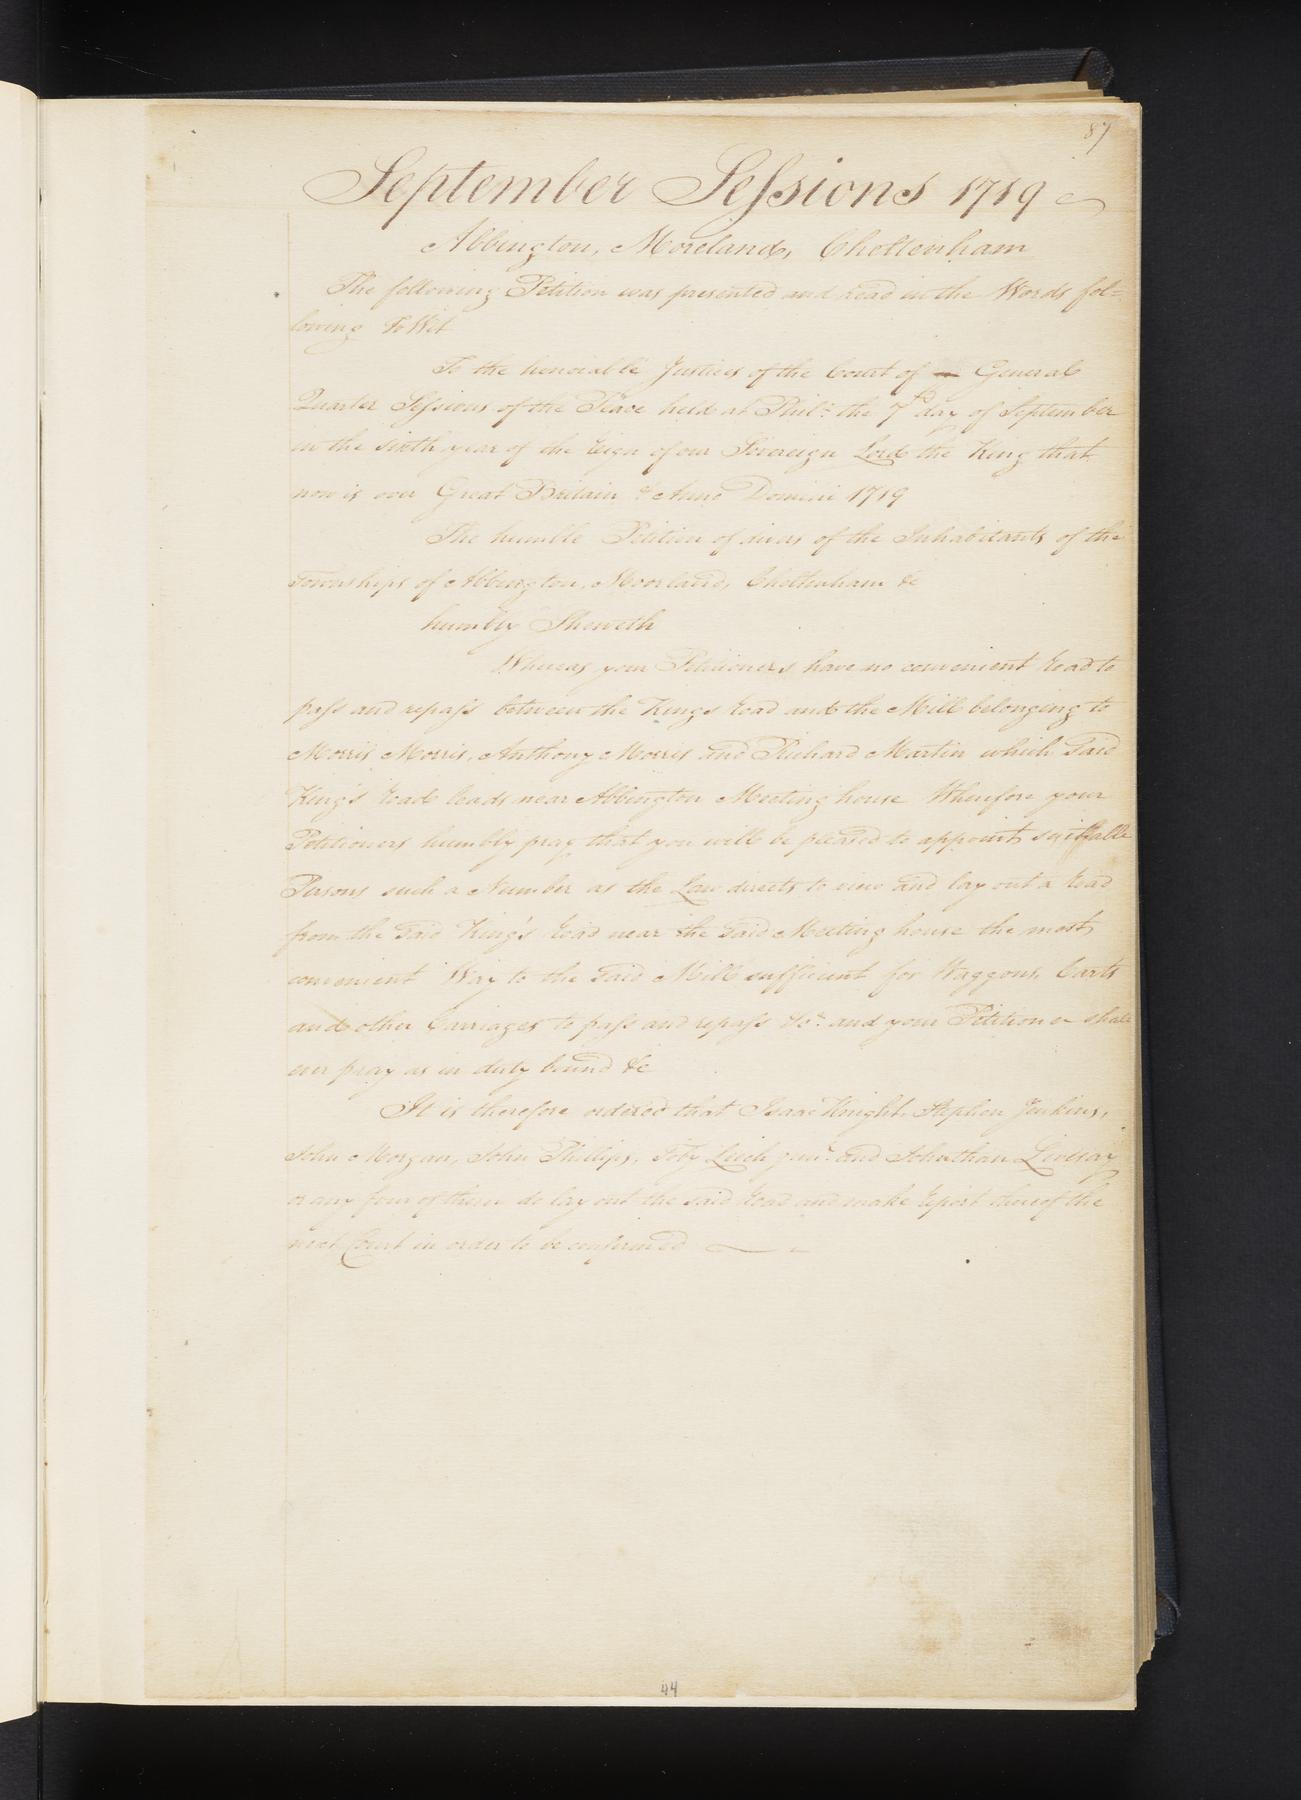 87
September Sessions 1719
Abbington, Moreland, Cheltenham
The following Petition was presented and read in the Words fol=
lowing to Wit
To the honorable Justices of the Court of General
Quarter Sessions of the Peace held at Phila. the 7th day of September
in the sixth year of the Reign of our Sovereign Lord the King that
now is over Great Britain &c Anno Domini 1719
The humble Petition of divers of the Inhabitants of the
Townships of Abbington, Moorland, Cheltenham &c
humbly Sheweth
Whereas your Petitioners have no convenient Road to
pass and repass between the Kings Road and the Mill belonging to
Morris Morris, Anthony Morris and Richard Martin which Said
King's Road leads near Abbington Meeting house Wherefore your
Petitioners humbly pray that you will be pleased to appoint
Persons such a Number as the Law directs to view and lay out a Road
from the Said King's Road near the Said Meeting house the most
convenient Way to the Said Mill sufficient for Waggons, Carts
and other Carriages to pass and repass &c. and your Petitioner shall
ever pray as in duty bound &c
It is therefore ordered that Isaac Knight, Stephen Jenkins,
John Morgan, John Phillips, Toby Leich junr. and Johnathan Livesay
or any four of them do lay out the said Road and make Report thereof the
next Court in order to be confirmed
44